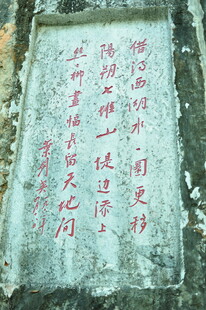 借得西湖水一圜更移
陽朔七堆山堤边添上
丝丝柳畫幅長留天地间
葉